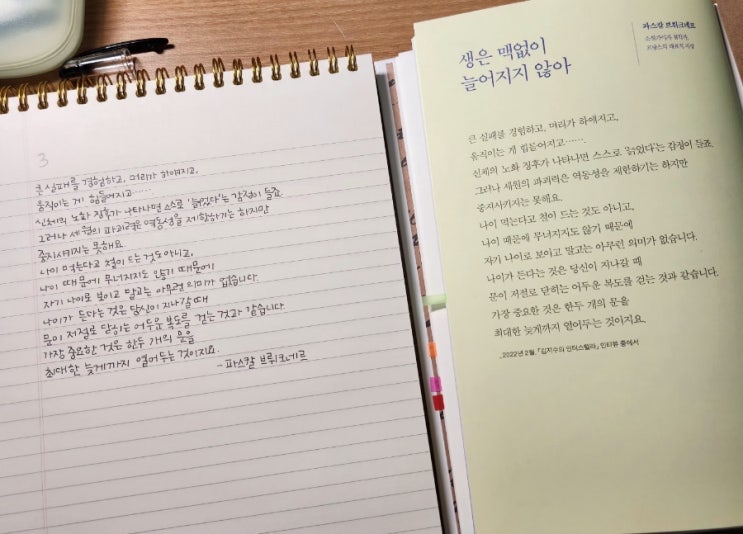 3
큰 실패를 경험하고, 머리가 하얘지고,
움직이는 게 힘들어지고……
신체의 노화 징후가 나타나면 스스로 '늙었다'는 감정이 들죠.
그러나 세월의 파괴력은 역동성을 제한하기는 하지만
중지시키지는 못해요.
나이 먹는다고 철이 드는 것도 아니고,
나이 때문에 무너지지도 않기 때문에
자기 나이로 보이고 말고는 아무런 의미가 없습니다.
나이가 든다는 것은 당신이 지나갈 때
문이 저절로 닫히는 어두운 복도를 걷는 것과 같습니다.
가장 중요한 것은 한두 개의 문을
최대한 늦게까지 열어두는 것이지요.
- 파스칼 브뤼크네르
생은 맥없이
늘어지지 않아
파스칼 브뤼크네르
소설가이자 철학자,
프랑스의 대표적 지성
큰 실패를 경험하고, 머리가 하얘지고,
움직이는 게 힘들어지고……
신체의 노화 징후가 나타나면 스스로 '늙었다'는 감정이 들죠.
그러나 세월의 파괴력은 역동성을 제한하기는 하지만
중지시키지는 못해요.
나이 먹는다고 철이 드는 것도 아니고,
나이 때문에 무너지지도 않기 때문에
자기 나이로 보이고 말고는 아무런 의미가 없습니다.
나이가 든다는 것은 당신이 지나갈 때
문이 저절로 닫히는 어두운 복도를 걷는 것과 같습니다.
가장 중요한 것은 한두 개의 문을
최대한 늦게까지 열어두는 것이지요.
_2022년 2월, 「김지수의 인터스텔라」 인터뷰 중에서